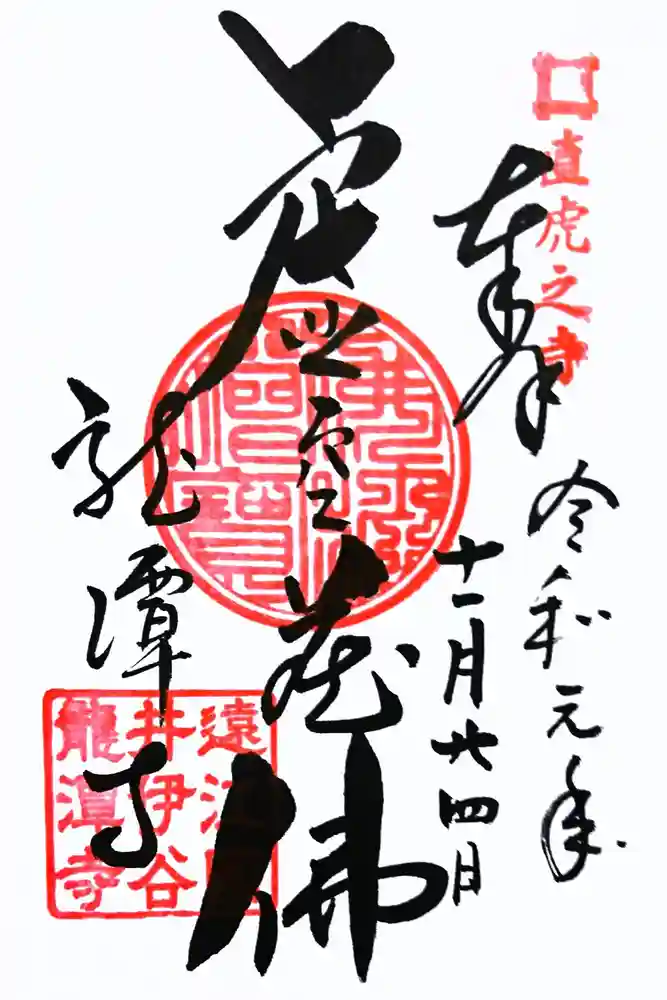 直虎之寺
奉拝
令和元年
十一月廿四日
虚空蔵佛
龍潭寺
遠江
井伊谷
龍潭寺